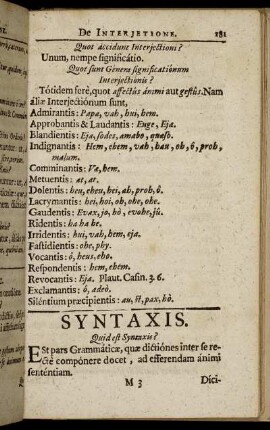 De Interjetione. 181
Quot accidunt Interjectioni?
Unum, nempe significátio.
Quot sunt Génera significatiónum
Interjectiónis?
Tótidem ferè, quot afféctûs ánimi aut gestûs. Nam
áliæ Interjectiónum sunt,
Admirantis: Papæ, vah, hui, hem.
Approbantis & Laudantis: Euge, Eja.
Blandientis: Eja, sodes, amabo, quæso.
Indignantis: Hem, ehem, vah, hau, oh, ô, proh,
malum.
Comminantis: Væ, hem.
Metuentis: at, at.
Dolentis: heu, eheu, hei, ah, proh, ô.
Lacrymantis: hei, hoi, oh, ohe, ohe.
Gaudentis: Evax, jo, hò, evohe, jú.
Ridentis: ha ha he.
Irridentis: hui, vah, hem, eja.
Fastidientis: ohe, phy.
Vocantis: ô, heus, eho.
Respondentis: hem, ehem.
Revocantis: Eja. Plaut. Casin. 3. 6.
Exclamantis: ô, adeò.
Siléntium præcipientis: au, st, pax, hò.
SYNTAXIS.
Quid est Syntaxis?
Est pars Grammáticæ, quæ dictiónes inter se re-
ctè compónere docet, ad efferendam ánimi
senténtiam.
M 3 Dici-